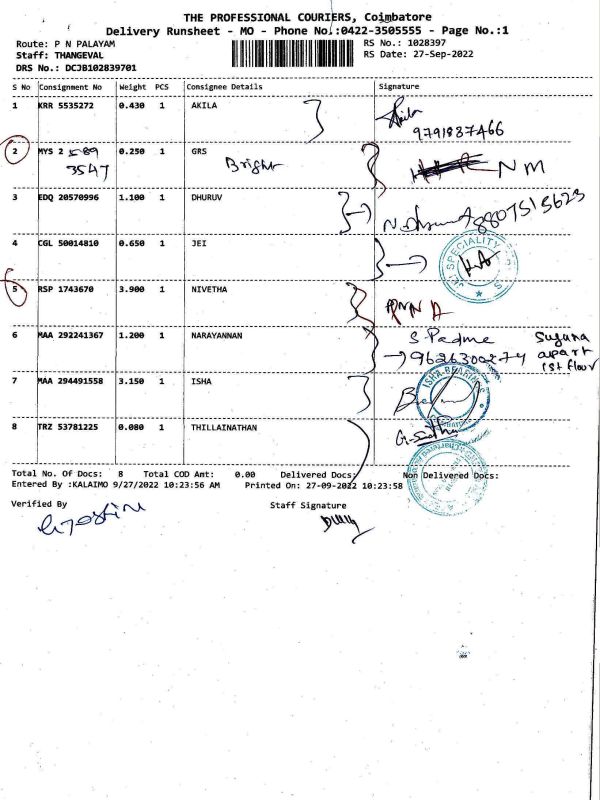 THE PROFESSIONAL COURIERS, Coimbatore
Delivery Runsheet - MO - Phone No.:0422-3505555 - Page No.:1
Route: P N PALAYAM
RS No.: 1028397
Staff: THANGEVAL
RS Date: 27-Sep-2022
DRS No.: DCJB102839701
S No Consignment No Weight PCS Consignee Details Signature
1 KRR 5535272 0.430 1 AKILA
Akila
9791887466
2 MYS 2 589 0.250 1 GRS
3547 Bright
NM
3 EDQ 20570996 1.100 1 DHURUV
8807515623
4 CGL 50014810 0.650 1 JEI
JEI SPECIALITY
5 RSP 1743670 3.900 1 NIVETHA
6 MAA 292241367 1.200 1 NARAYANNAN
S. Padma
9626300274
Suguna
apart
1st floor
7 MAA 294491558 3.150 1 ISHA
ISHA BEARING
8 TRZ 53781225 0.080 1 THILLAINATHAN
Total No. Of Docs: 8 Total COD Amt: 0.00 Delivered Docs: Non Delivered Docs:
Entered By :KALAIMO 9/27/2022 10:23:56 AM Printed On: 27-09-2022 10:23:58
Verified By Staff Signature